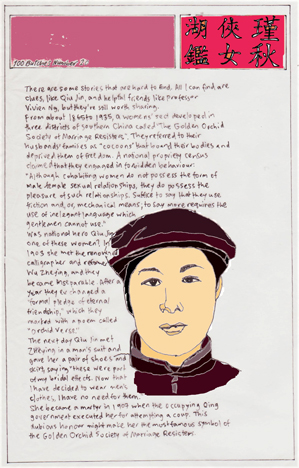 瑾秋
俠女
湖鑑
100 Butches Number
There are some stories that are hard to find. All I can find are
clues, like Qiu Jin, and helpful friends like Professor
Vivien Ng, but they're still worth sharing.
From about 1865 to 1935, a womens' sect developed in
three districts of southern China called "The Golden Orchid
Society of Marriage Resisters". They referred to their
husbands' families as "cocoons" that bound their bodies and
deprived them of freedom. A national property census
claimed that they engaged in forbidden behaviour:
"Although cohabiting women do not possess the form of
male female sexual relationships, they do possess the
pleasure of such relationships. Suffice to say that they use
friction and, or, mechanical means; to say more requires the
use of inelegant language which
gentlemen cannot use."
Was national hero Qiu Jin
one of these women? In
1903 she met the renowned
calligrapher and reformer
Wu Zheying, and they
became inseparable. After a
year they exchanged a
"formal pledge of eternal
friendship," which they
marked with a poem called
"Orchid Verse."
The next day Qiu Jin met
Zheying in a man's suit and
gave her a pair of shoes and
skirt, saying "these were part
of my bridal effects. Now that
I have decided to wear men's
clothes, I have no need for them.
She became a martyr in 1907 when the occupying Qing
government executed her for attempting a coup. This
dubious honour might make her the most famous symbol of
the Golden Orchid Society of Marriage Resisters